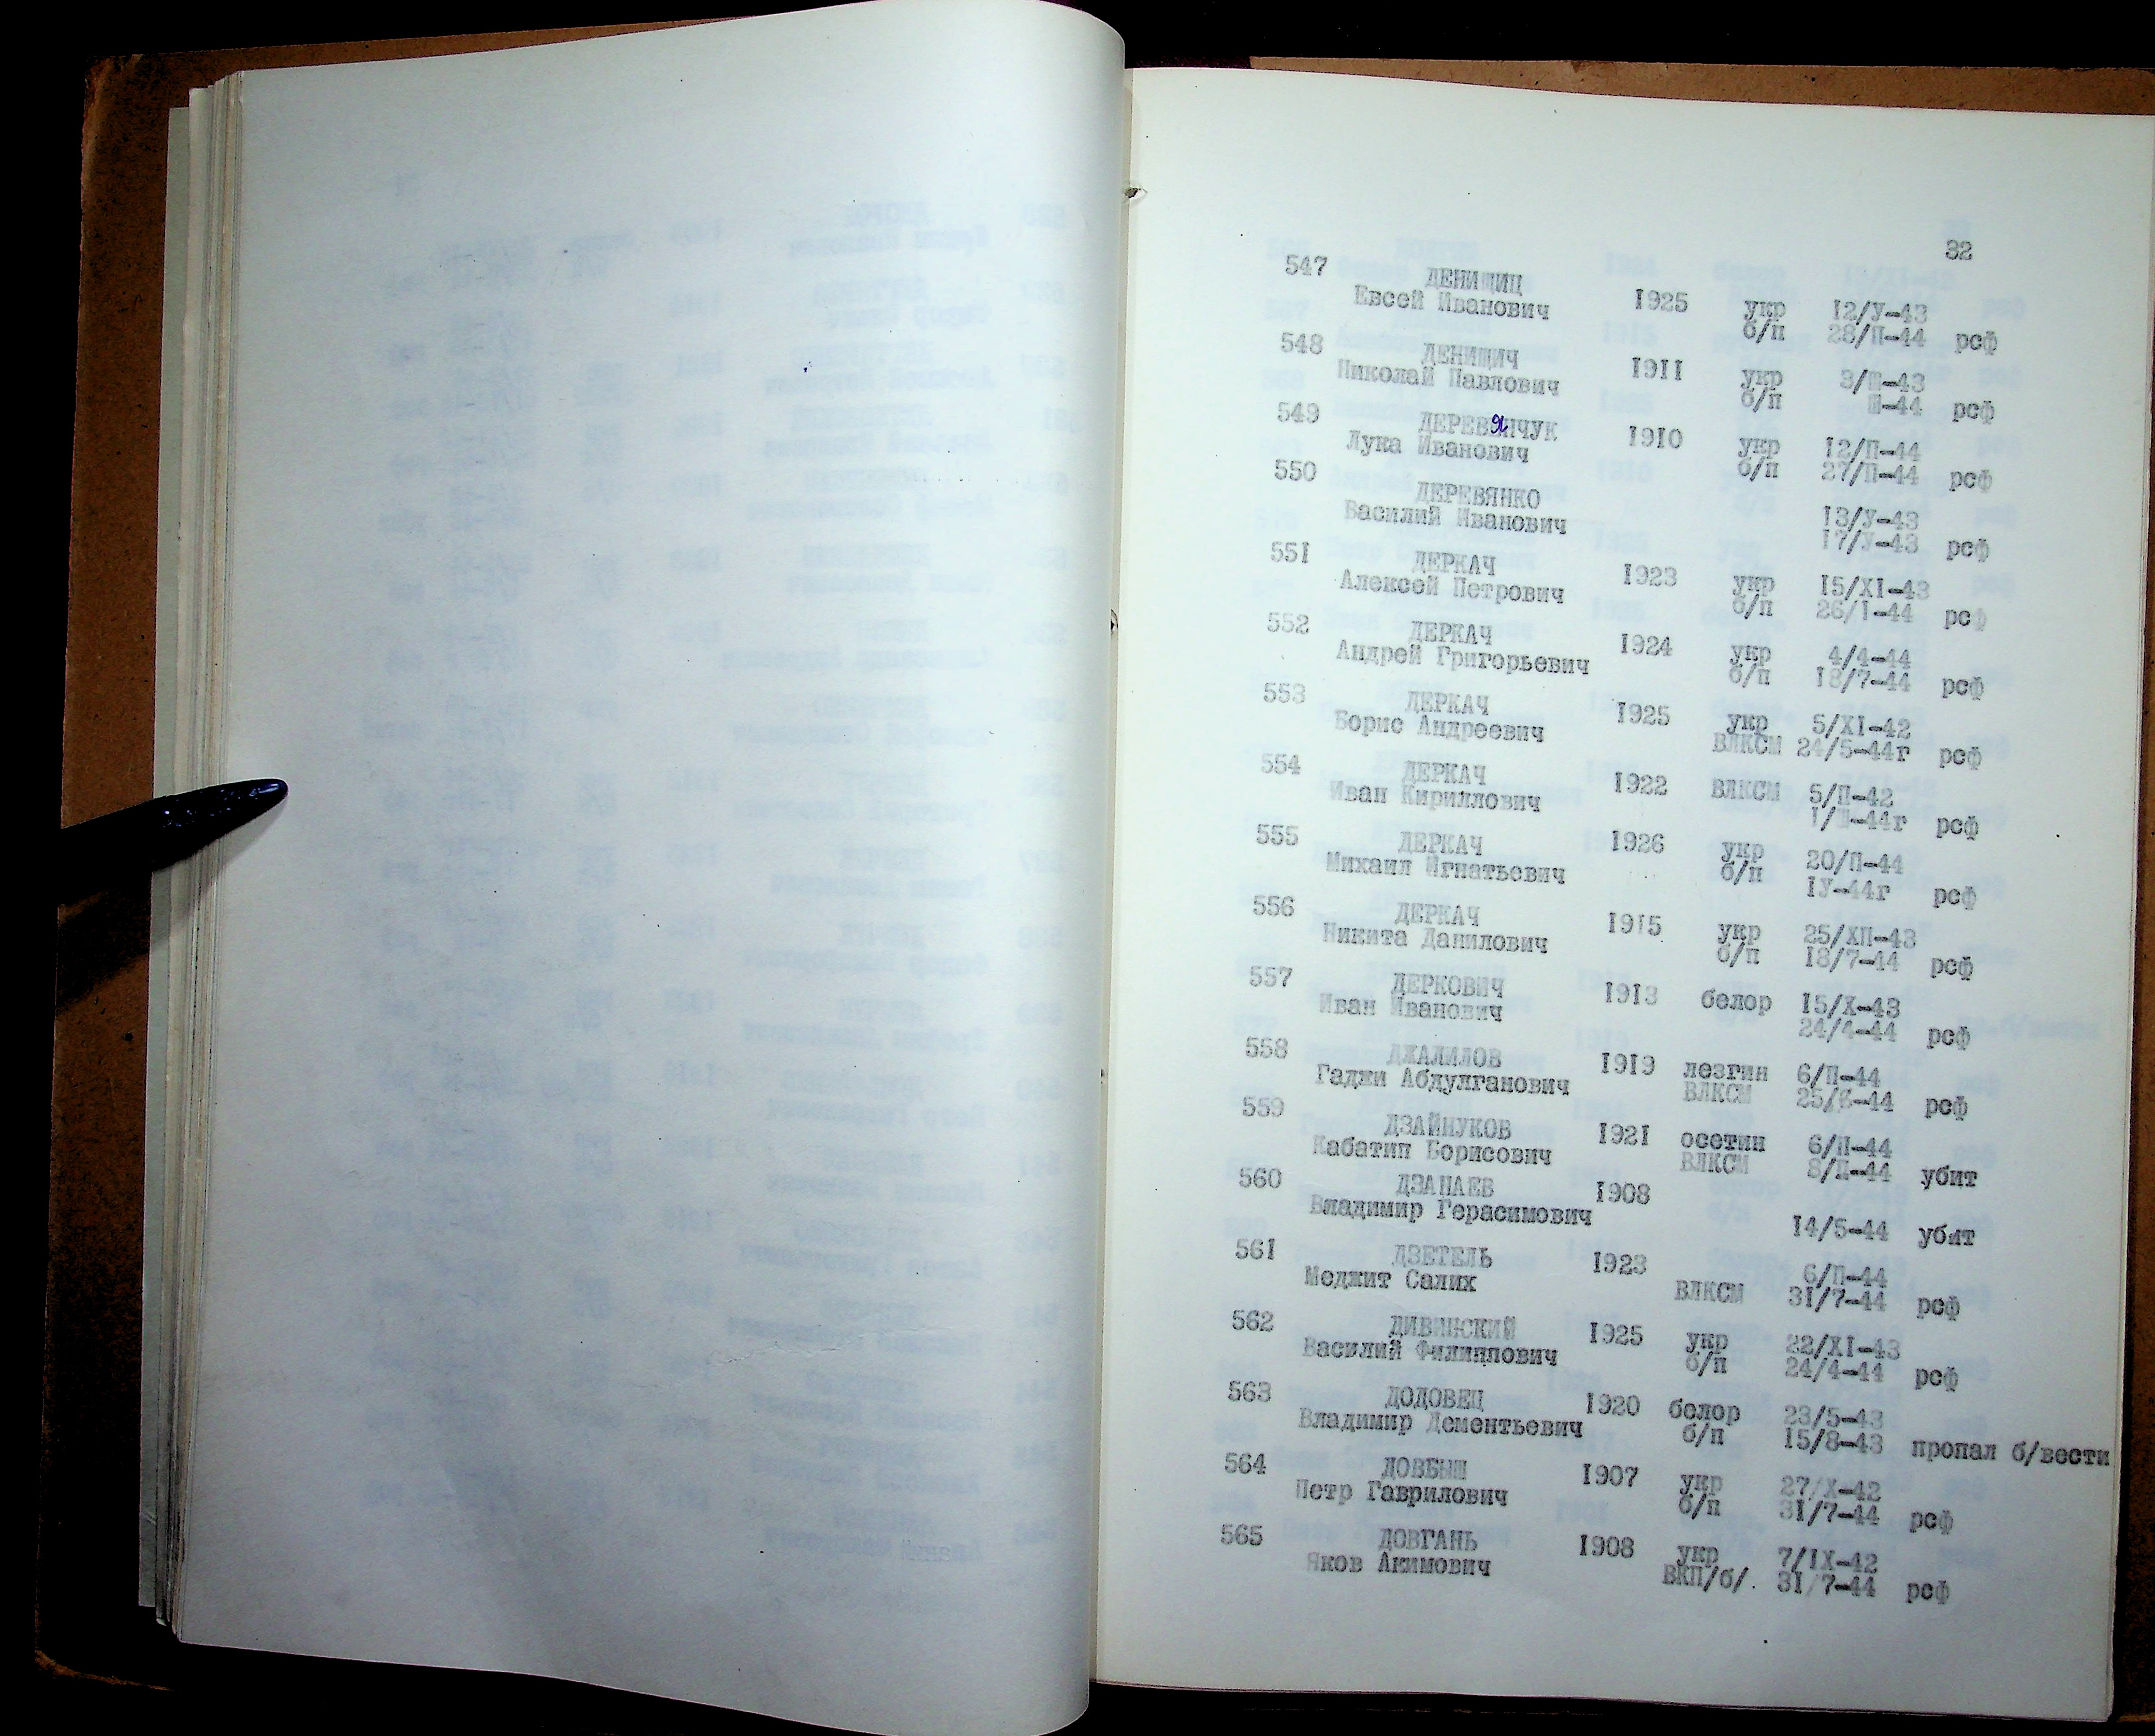 32
547 ДЕНИЩИЦ
Евсей Иванович 1925 укр 12/У-43
б/п 28/П-44 рсф
548 ДЕНИЩИЧ
Николай Павлович 1911 укр 3/Ш-43
б/п Ш-44 рсф
549 ДЕРЕВЯНЧУК
Лука Иванович 1910 укр 12/П-44
б/п 27/П-44 рсф
550 ДЕРЕВЯНКО
Василий Иванович 13/У-43
17/У-43 рсф
551 ДЕРКАЧ
Алексей Петрович 1923 укр 15/XI-43
б/п 26/I-44 рсф
552 ДЕРКАЧ
Андрей Григорьевич 1924 укр 4/4-44
б/п 18/7-44 рсф
553 ДЕРКАЧ
Борис Андреевич 1925 укр 5/XI-42
ВЛКСМ 24/5-44г рсф
554 ДЕРКАЧ
Иван Кириллович 1922 ВЛКСМ 5/П-42
рсф
555 ДЕРКАЧ
Михаил Игнатьевич 1926 укр 20/П-44
б/п IУ-44г рсф
556 ДЕРКАЧ
Никита Данилович 1915 укр 25/ХП-43
б/п 18/7-44 рсф
557 ДЕРКОВИЧ
Иван Иванович 1913 белор 15/X-43
24/4-44 рсф
558 ДЖАЛИЛОВ
Гаджи Абдулганович 1919 лезгин 6/П-44
ВЛКСМ рсф
559 ДЗАЙНУКОВ
Кабатип Борисович 1921 осетин 6/П-44
ВЛКСМ 8/П-44 убит
560 ДЗАНАЕВ
Владимир Герасимович 1908
14/5-44 убит
561 ДЗЕТЕЛЬ
Меджит Салих 1923 6/П-44
ВЛКСМ 31/7-44 рсф
562 ДИВИНСКИЙ
Василий Филиппович 1925 укр 22/XI-43
б/п 24/4-44 рсф
563 ДОДОВЕЦ
Владимир Дементьевич 1920 белор 23/5-43
б/п 15/8-43 пропал б/вести
564 ДОВБЫШ
Петр Гаврилович 1907 укр 27/X-42
б/п 31/7-44 рсф
565 ДОВГАНЬ
Яков Акимович 1908 укр 7/IX-42
ВКП/б/. 31/7-44 рсф